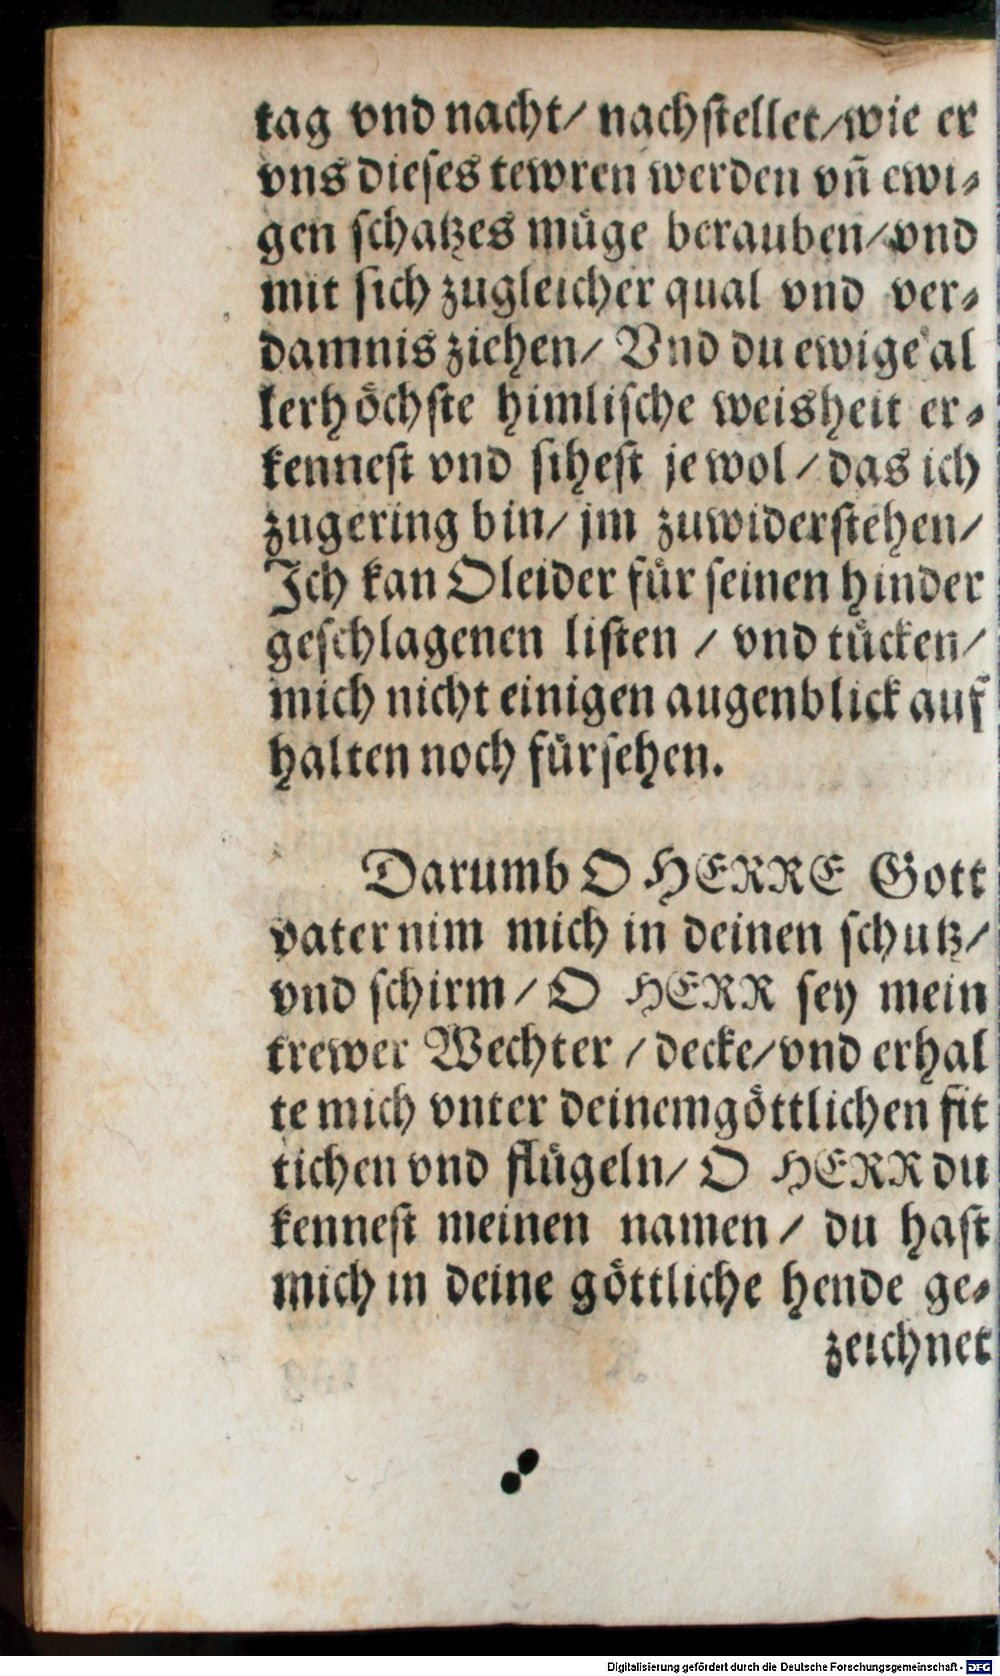 tag vnd nacht/ nachstellet/wie er
vns dieses tewren werden vñ ewi-
gen schatzes müge berauben/vnd
mit sich zugleicher qual vnd ver-
damnis ziehen/ Vnd du ewige al
kerhöchste himlische weisheit er-
kennest vnd sihest je wol/ das ich
zugering bin/ jm zuwiderstehen/
Ich kan O leider für seinen hinder
geschlagenen listen / vnd tücken/
mich nicht einigen augenblick auf
halten noch fürsehen.
Darumb O HERRE Gott
vater nim mich in deinen schutz/
vnd schirm/ O HERR sey mein
trewer Wechter / decke/vnd erhal
te mich vnter deinem göttlichen fit
tichen vnd flügeln/ O HERR du
kennest meinen namen/ du hast
mich in deine göttliche hende ge-
zeichnet
Digitalisierung gefördert durch die Deutsche Forschungsgemeinschaft - DFG